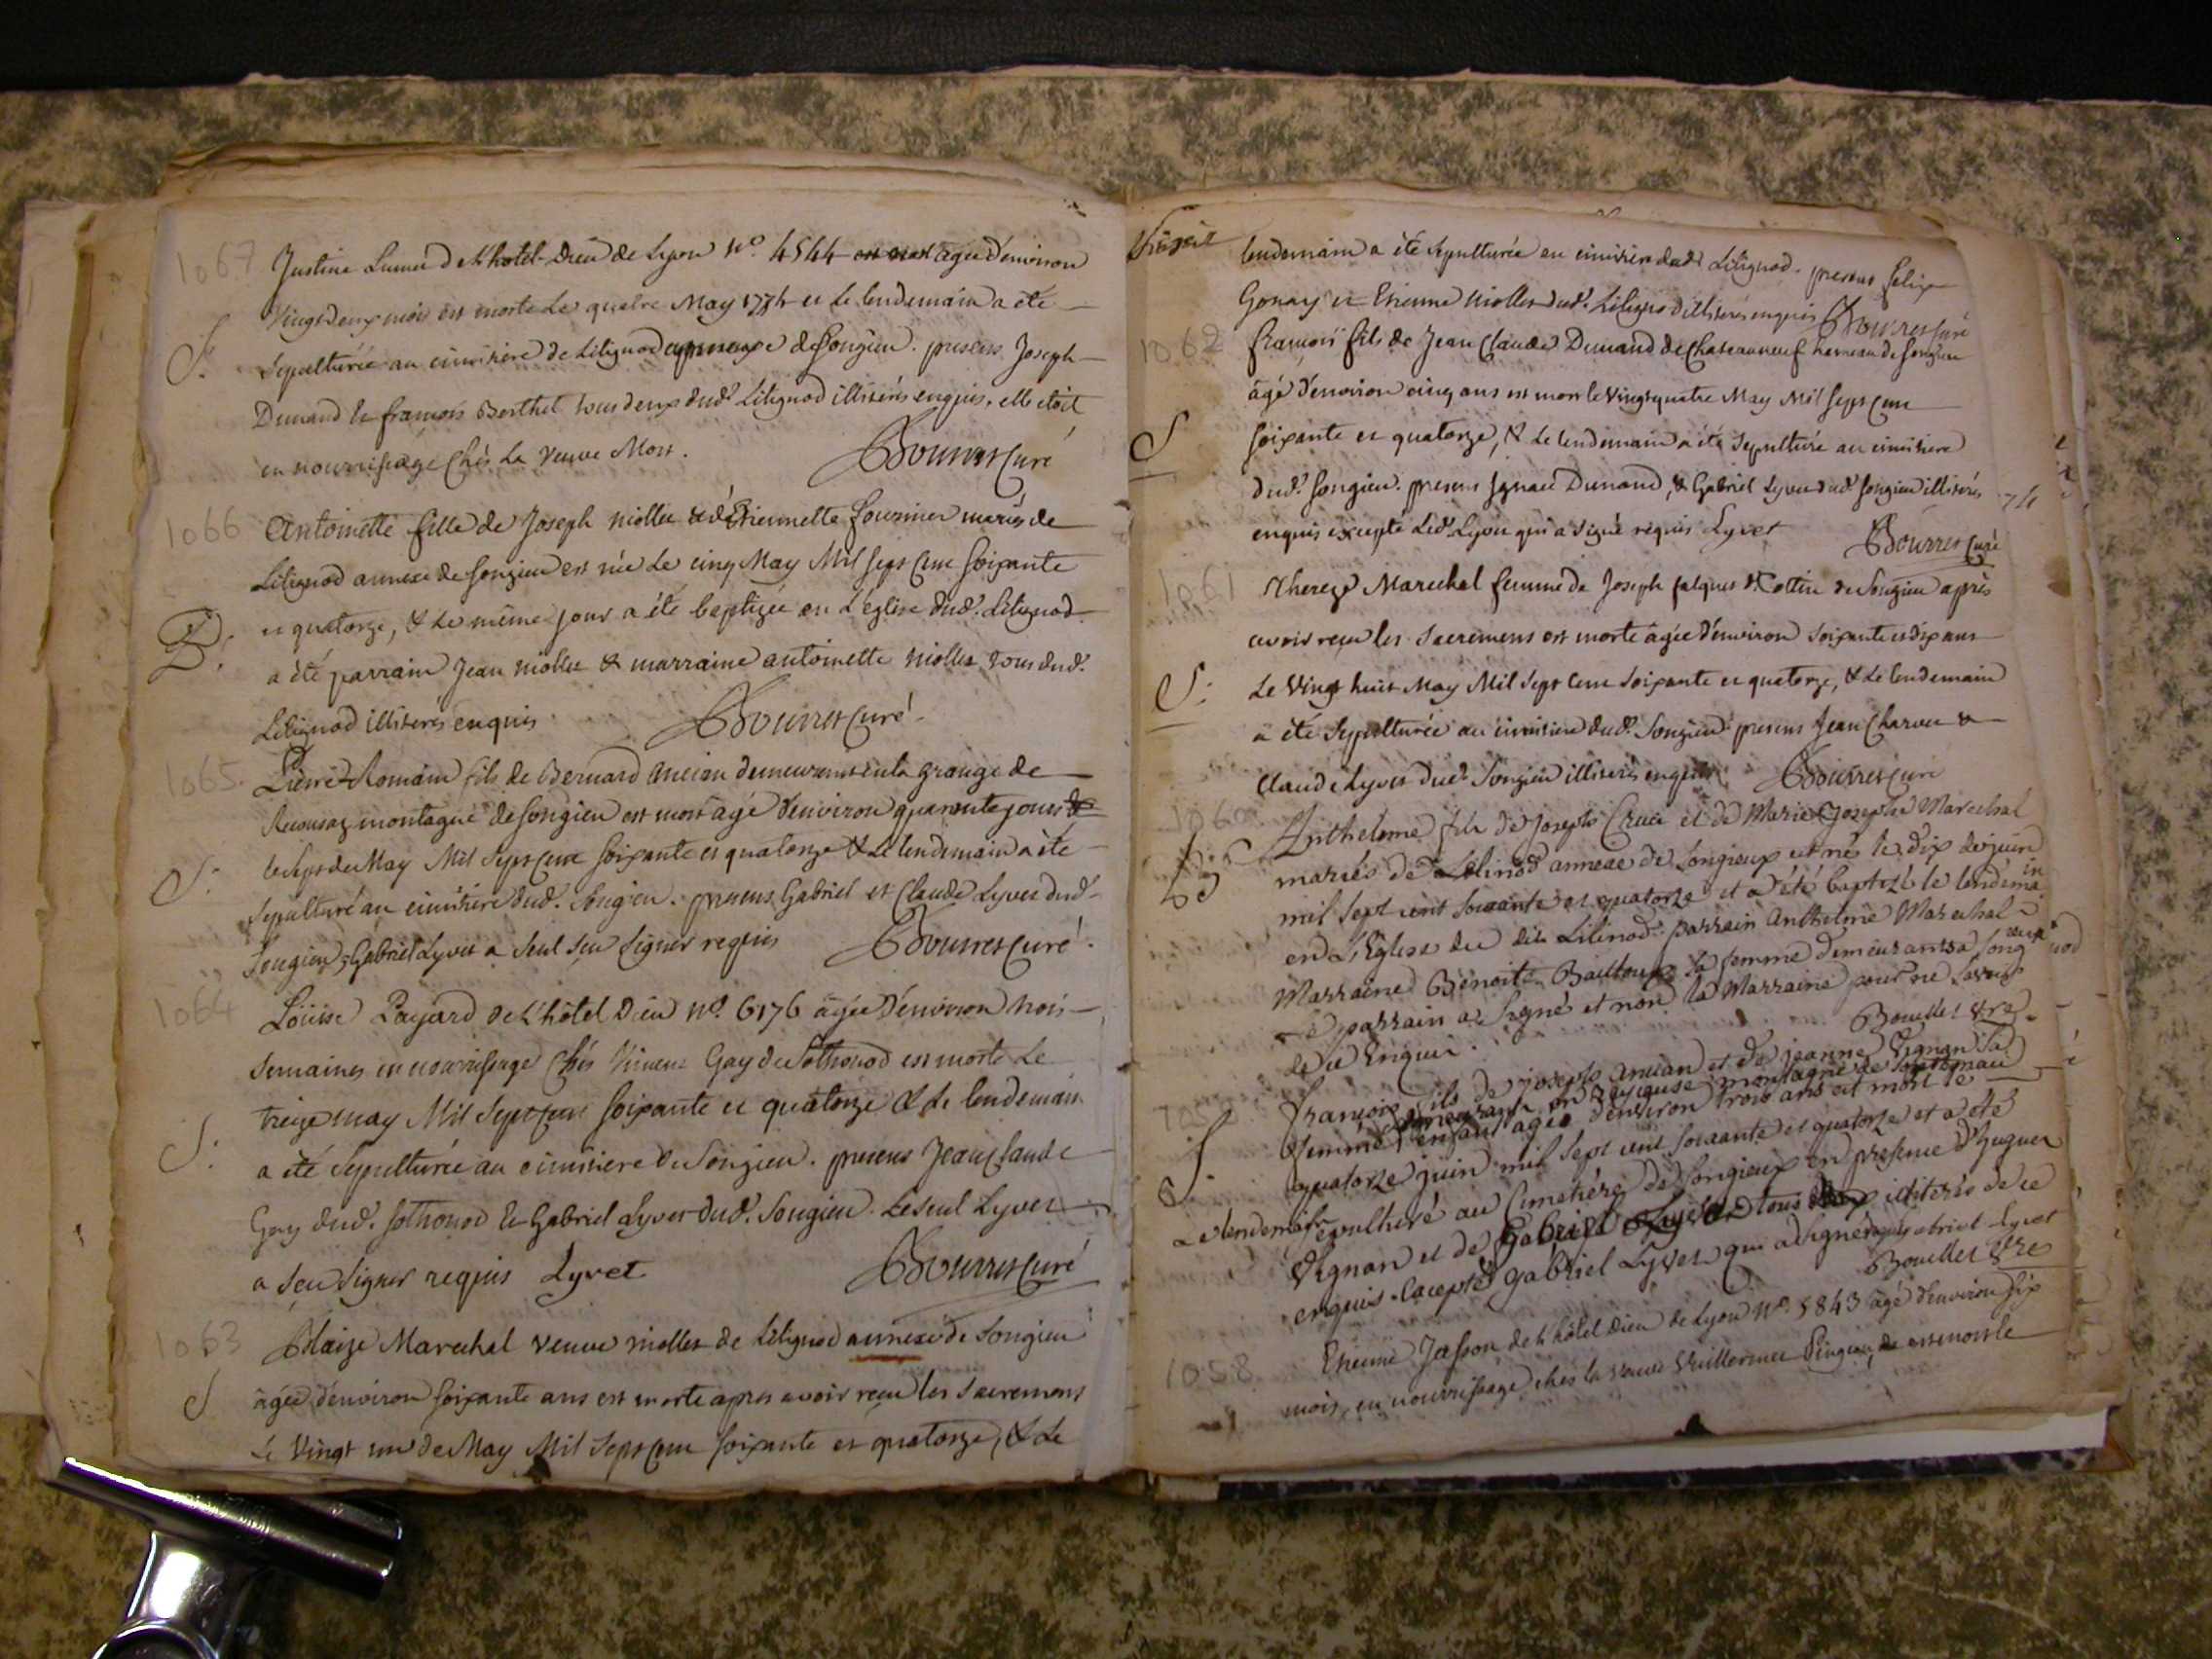 1067
Justine Lumei de L'hotel-Dieu de Lyon N.o 4544 agée d'environ
Vingt deux mois est morte Le quatre May 1774 et le lendemain a été
S.
Sepulturée au cimitiere de Litignod annexe de Songieu. presens Joseph
Dunand & francois Berthet tous deux dud.t Litignod illiterés enquis. elle etoit
en nourrissage Chés La Veuve Mott. Bourret Curé
1066
Antoinette fille de Joseph niollet & d'Etiennette fournier mariés de
Litignod annexe de Songieu est née Le cinq May Mil Sept Cent Soixante
B.
et quatorze, & Le même jour a été baptizée en L'eglise dud.t Litignod
a été parrain Jean niollet & marraine antoinette niollet tous dud.t
Litignod illiteres enquis Bourret Curé
1065
Pierre Romain fils de Bernard ancian demeurant en la grange de
montagne de Songieu est mort agé d'environ quarante jours
S.
le sept de May Mil Sept Cent Soixante et quatorze & Le lendemain a été
Sepulturé au cimitiere dud. Songieu. presens Gabriel et Claude Lyvet dud.
Songieu, Gabriel Lyvet a Seul Seu Signer requis Bourret Curé
1064
Loüise Payard de L'hôtel Dieu N.o 6176 agée d'environ trois
Semaines en nourrissage Chés Vincent Gay de Sothonod est morte Le
treize may Mil Sept Cent Soixante et quatorze & Le lendemain
S.
a été Sepulturée au cimitiere de Songieu. presens Jean Claude
Gay dud. Sothonod & Gabriel Lyvet dud. Songieu. Le seul Lyvet
a Seu Signer requis Lyvet Bourret Curé
1063
Blaize Marechal veuve niollet de Litignod annexe de Songieu
S
agée d'environ Soixante ans est morte apres avoir reçu les Sacremens
Le Vingt un de May Mil Sept Cent Soixante et quatorze, & Le
lendemain a été Sepulturée au cimitiere dud.t Litignod. presens felix
Gonay et Etienne niollet dud.t Litignod illiterés enquis Bourret Curé
1062
francois fils de Jean Claude Dunand de Chateauneuf hameau de Songieu
âgé d'environ cinq ans est mort le Vingt quatre May Mil Sept Cent
S
Soixante et quatorze, & Le lendemain a été Sepulturé au cimitiere
dud.t Songieu. presens Ignace Dunand, & Gabriel Lyvet dud.t Songieu illiterés
74
enquis excepté Led.t Lyvet qui a signé requis Lyvet Bourret Curé
1061
Thereze Marechal femme de Joseph Cottin de Songieu après
avoir reçu les Sacremens est morte agée d'environ Soixante et dix ans
S.
Le Vingt huit May Mil Sept Cent Soixante et quatorze, & Le lendemain
a été Sepulturée au cimitiere dud. Songieu. presens Jean Charvet &
Claude Lyvet dud. Songieu illiterés enquis Bourret Curé
1060
Anthelome fils de Joseph Cruci et de Marie Josephe Marechal
mariés de Lilinod annexe de Songieux est né le dix de juin
mil sept cent soixante et quatorze et a été baptizé le lendemain
en L'Eglise du dit Lilinod. parrain Anthelme Marechal
Marraine Benoite Bailloux sa femme demeurants a Songieux
Le parrain a Signé et non la Marraine pour ne Savoir
de ce Enquis. Bouillet Vre.
François fils de Joseph ancian et de jeanne Vignan sa
femme demeurant en montagne de
enfant agée d'environ trois ans est mort le
S.
quatorze juin mil sept cent soixante et quatorze et a été
Le lendemain sepulturé au Cimetière de Songieux en presence d'huguet
Vignan et de Gabriel Lyvet tous deux illiterés de ce
enquis Excepté Gabriel Lyvet qui a Signé Gabriel Lyvet
Bouillet Vre
1058
Etienne Jasson de L'hôtel Dieu de Lyon N.o 5843 agé d'environ six
mois, en nourrissage chés la veuve Vuillermet est mort le